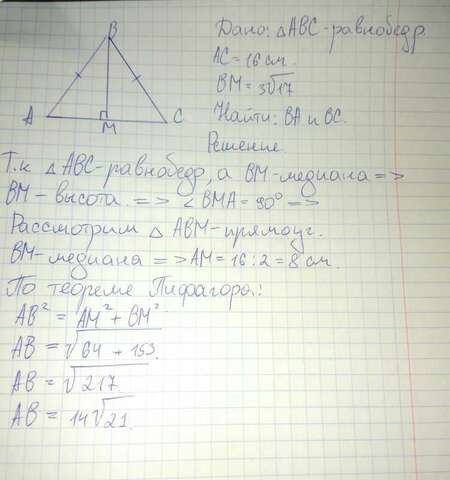 B
A
M
C
Дано: △ABC-равнобедр.
AC=16 см.
BM=3√17
Найти: BA и BC.
Решение
Т.к △ABC-равнобедр, а BM-медиана =>
BM-высота. => ∠BMA=90° =>
Рассмотрим △ ABM-прямоуг.
BM-медиана => AM=16:2=8 см.
По теореме Пифагора:
AB² = AM² + BM²
AB = √64 + 153.
AB = √217
AB = 14√21.